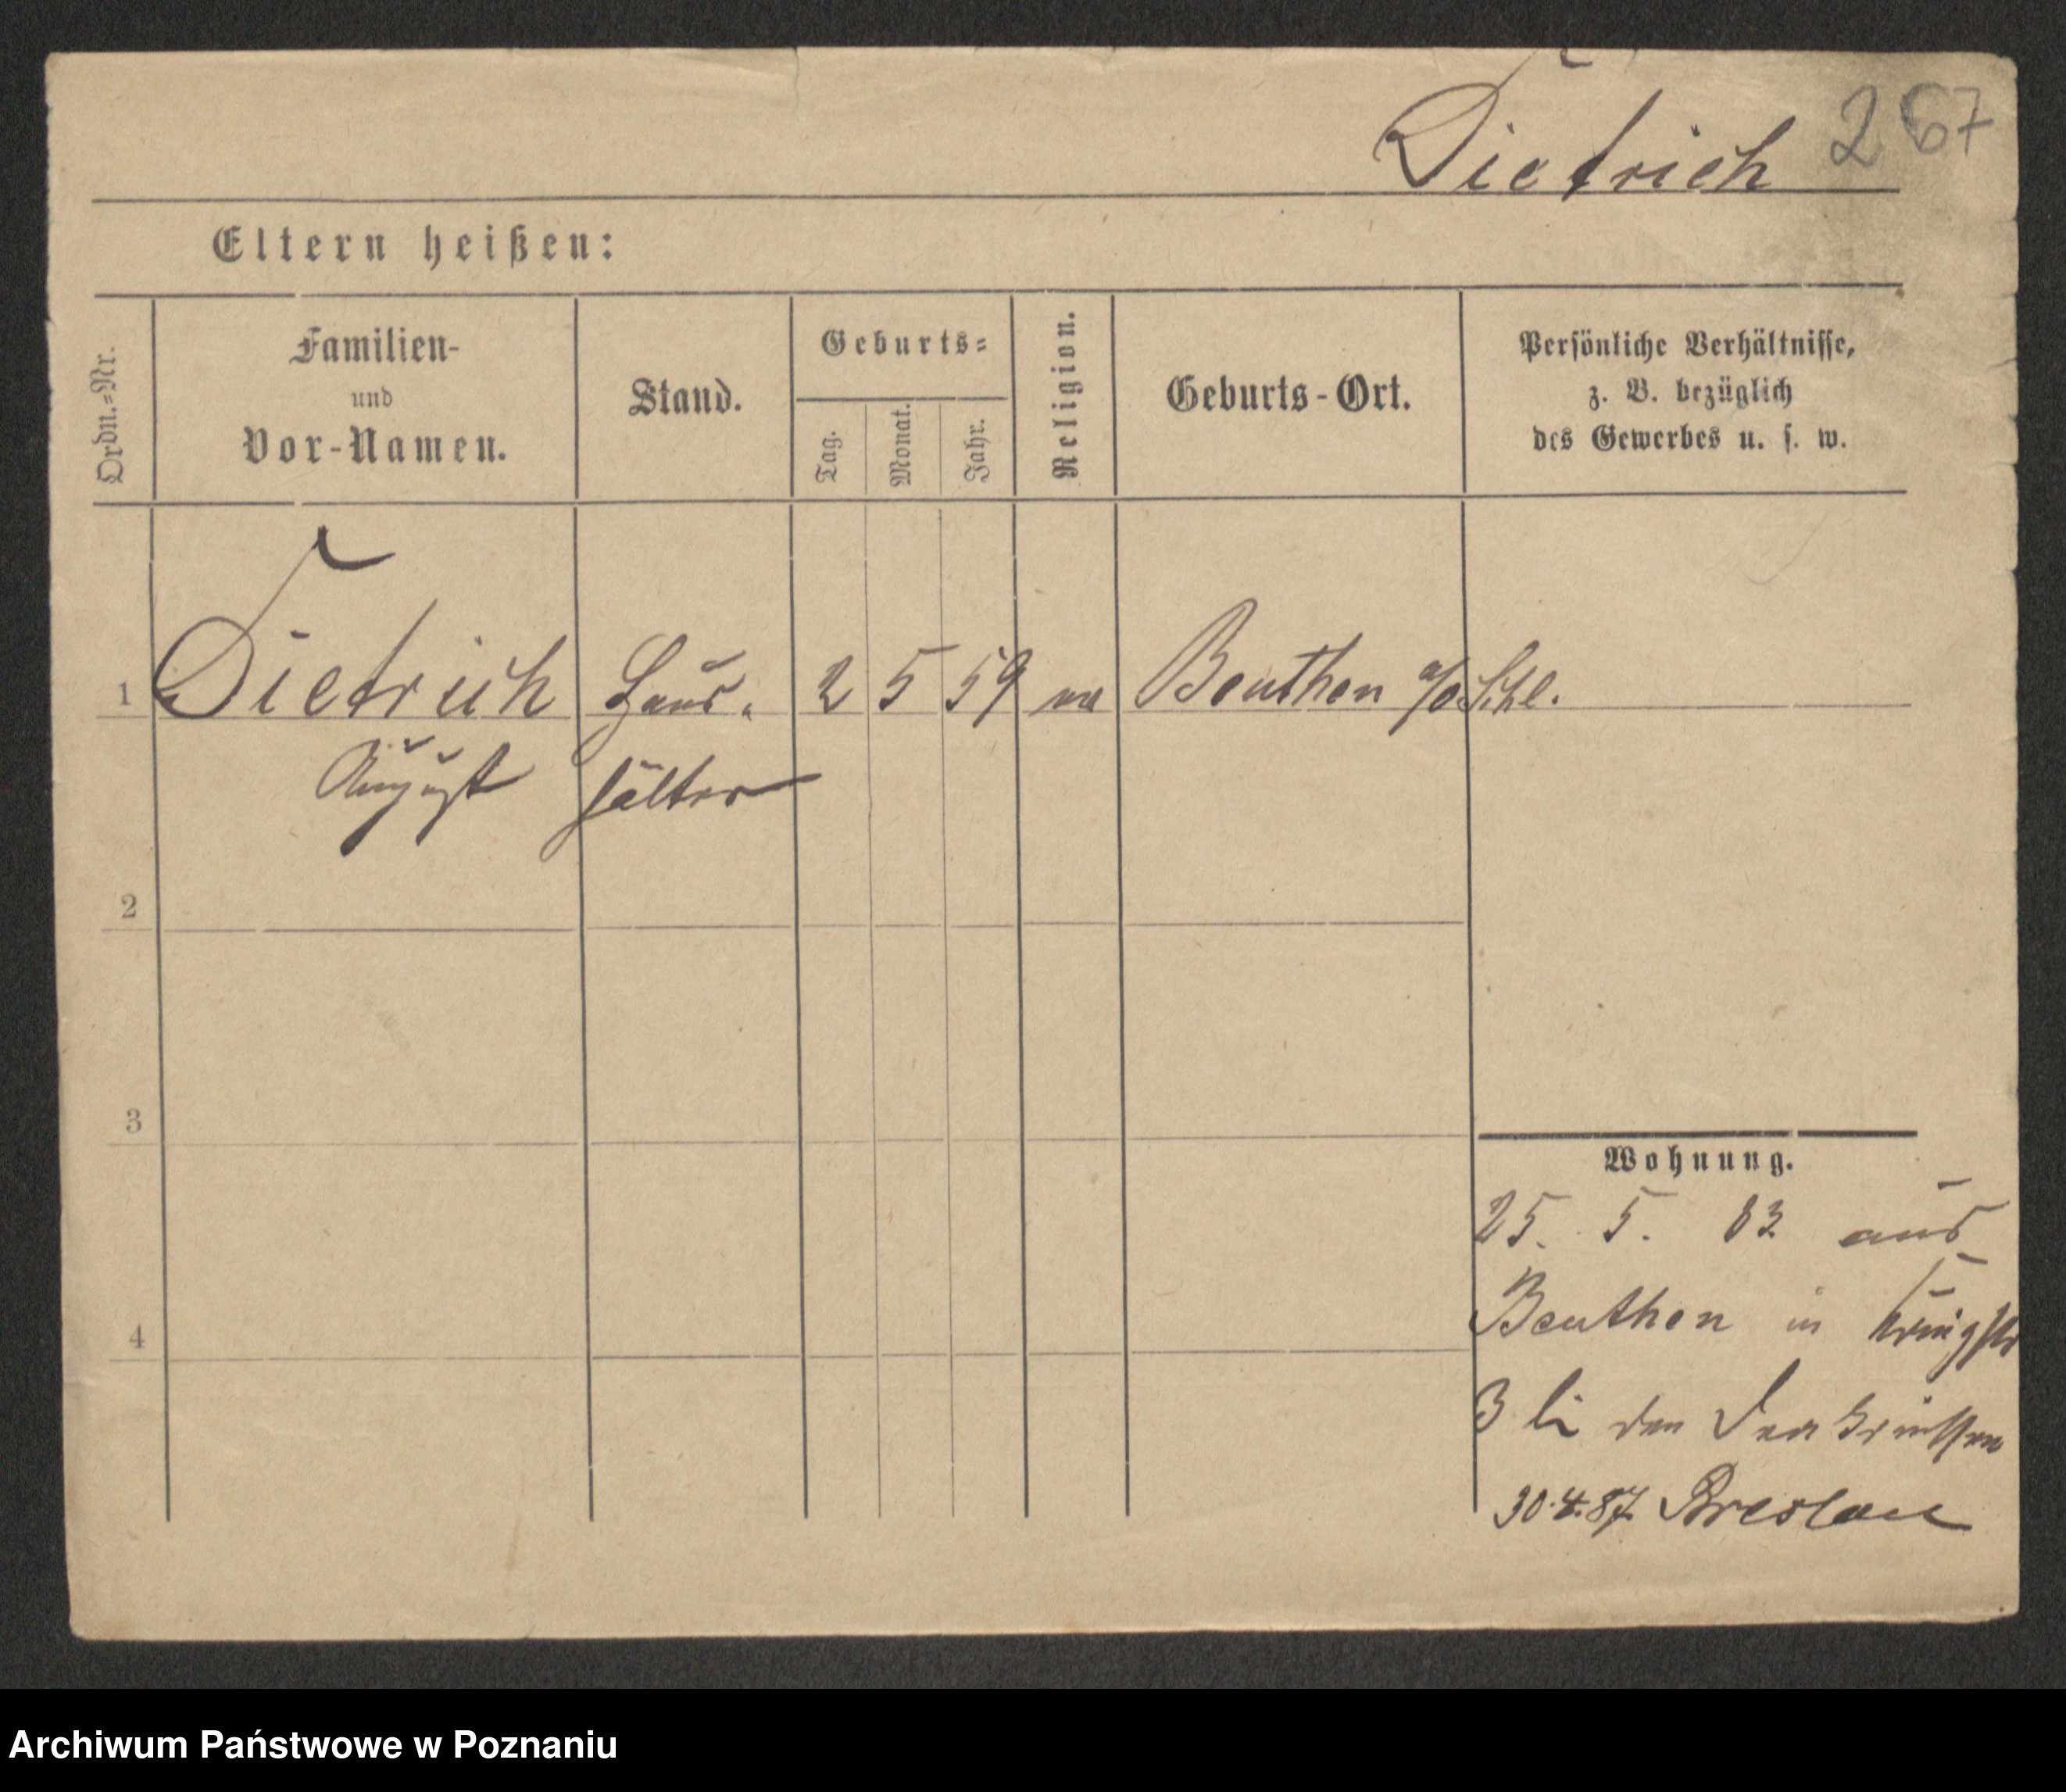 Dietrich 267
Eltern heißen:
Ordn.-Nr.
Familien-
und
Vor-Namen.
Stand.
Geburts-
Tag.
Monat.
Jahr.
Religion.
Geburts-Ort.
Persönliche Verhältnisse,
z. B. bezüglich
des Gewerbes u. s. w.
1 Dietrich Haus- 2 5 59 Beuthen a/O Schl.
August hälter
2
3
4
Wohnung.
25. 5. 83 aus
Beuthen in Königstr
3 bei
30.4.87. Breslau
Archiwum Państwowe w Poznaniu